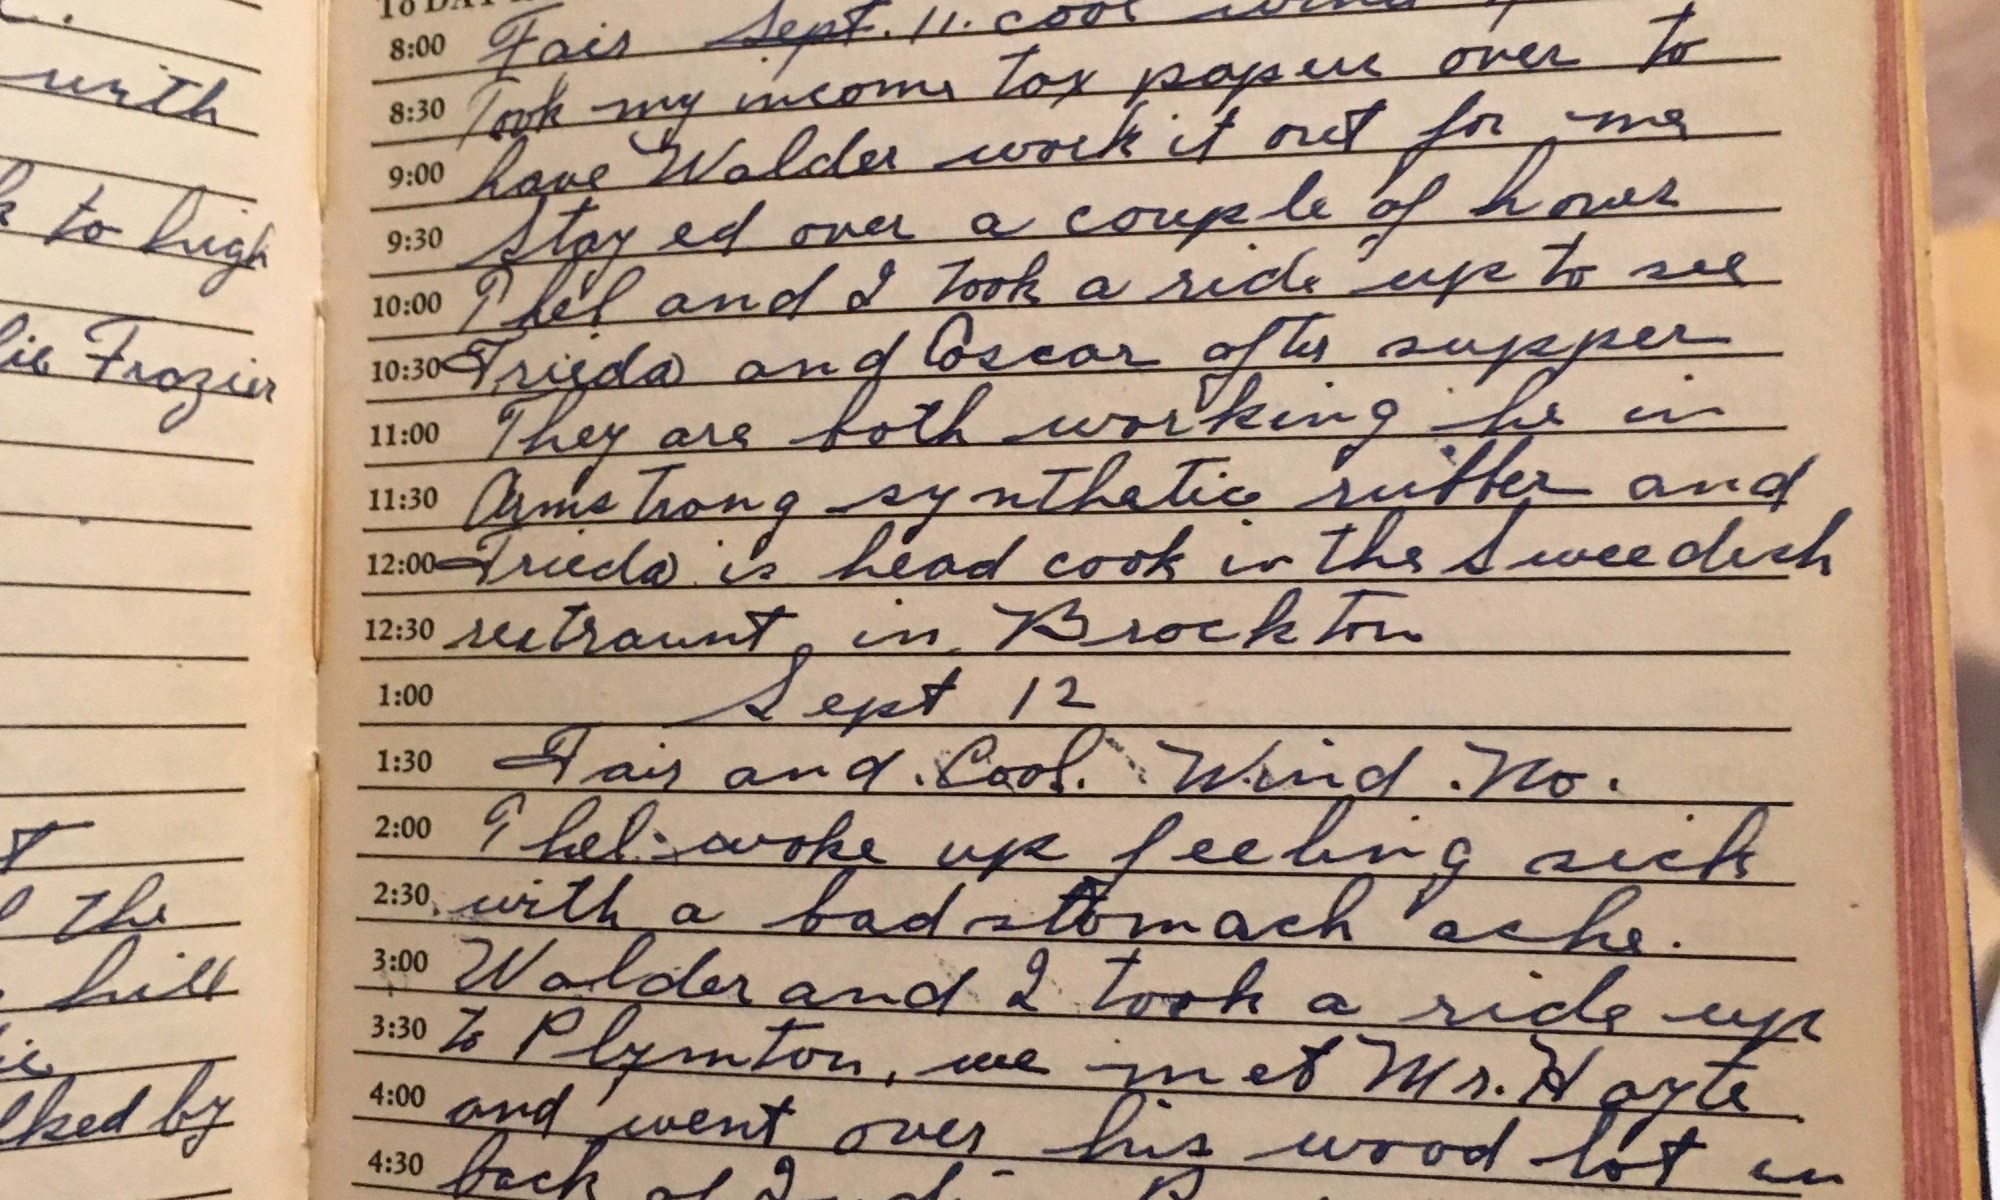 with
to high
Frazier
the
hill
by
To DAY
8:00 Fair Sept. 11. cool wind
8:30 Took my income tax papers over to
9:00 have Walder work it out for me
9:30 Stayed over a couple of hours
10:00 Thel and I took a ride up to see
10:30 Frieda and Oscar after supper
11:00 They are both working he in
11:30 Armstrong synthetic rubber and
12:00 Frieda is head cook in the Sweedish
12:30 restraunt, in Brockton
1:00 Sept 12
1:30 Fair and Cool. Wind No.
2:00 Thel woke up feeling sick
2:30 with a bad stomach ache.
3:00 Walder and I took a ride up
3:30 to Plymton, we met Mr. Hoyte
4:00 and went over his wood lot in
4:30 back of